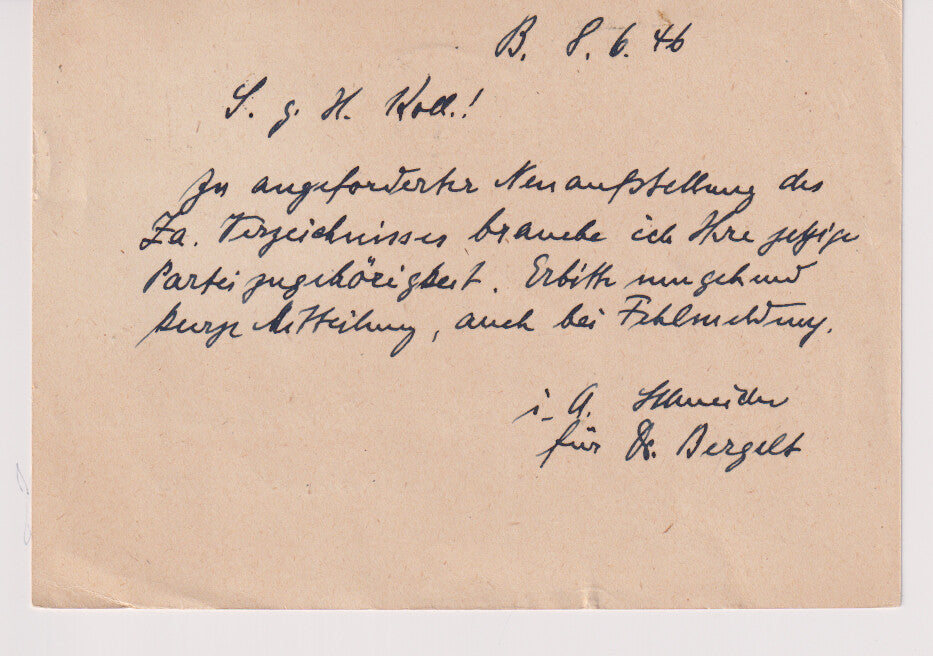 B. 8. 6. 46
S. g. H. Koll.!
Zu angeforderter Neuaufstellung des
Za. Verzeichnisses brauche ich Ihre jetzige
Parteizugehörigkeit. Erbitte umgehend
kurze Mitteilung, auch bei Fehlmeldung.
i. A. Schneider
für Dr. Bergelt